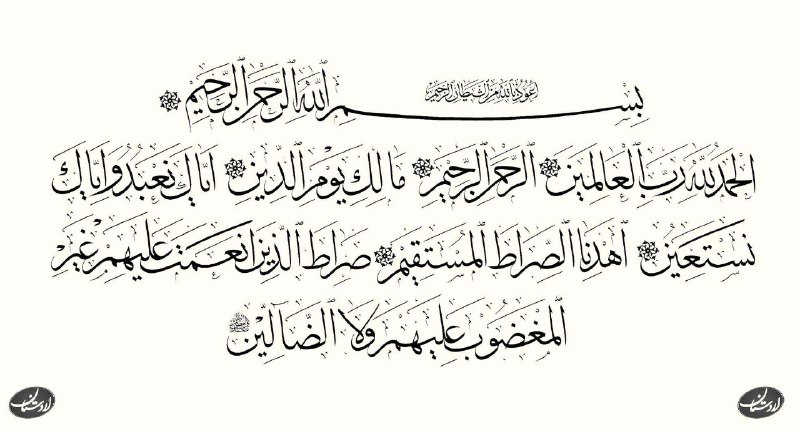 اعوذ بالله من الشیطان الرجیم
بسم الله الرحمن الرحیم
الحمد لله رب العالمین الرحمن الرحیم مالك یوم الدین ایاك نعبد و ایاك
نستعین اهدنا الصراط المستقیم صراط الذین انعمت علیهم غیر
المغضوب علیهم ولا الضالین
لاوستان
لاوستان